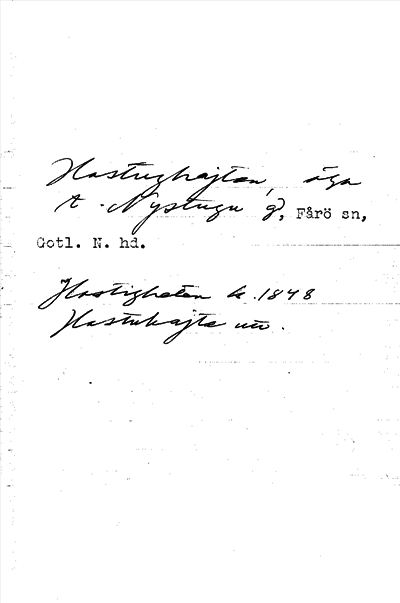 Hastighajten, äga
t. Nystugu g), Fårö sn,
Gotl. N. hd.
Hastigheten k. 1848
Hastuhajte utt.